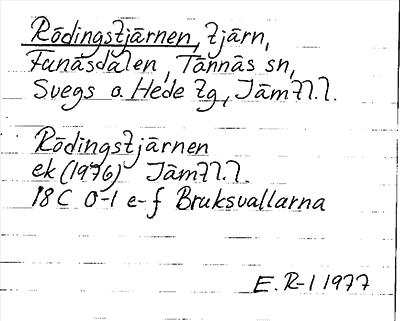 Rödingstjärnen, tjärn,
Funäsdalen, Tännäs sn,
Svegs o. Hede tg, Jämtl.l.
Rödingstjärnen
ek (1976) Jämtl.l.
18C 0-1 e-f Bruksvallarna
E. R-l 1977